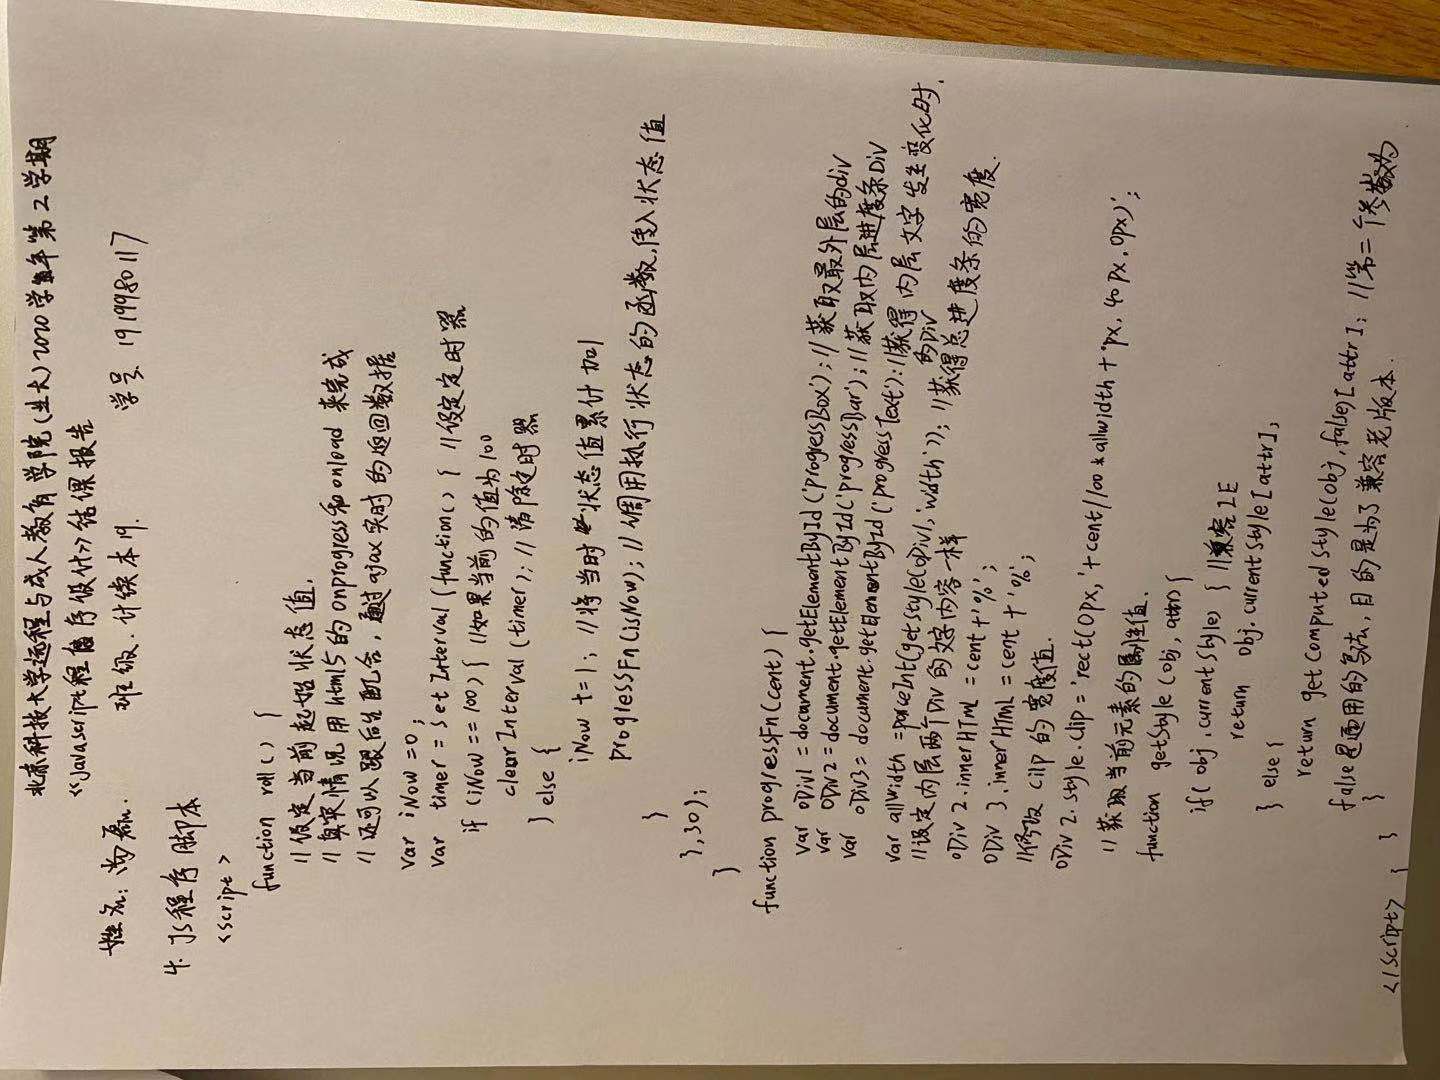 北京科技大学远程与成人教育学院(业大)2020学年第2学期
《Javascript程序设计》结课报告
姓名:尚磊. 班级.计续本19. 学号 1919980117
4. JS程序脚本
<script>
function roll() {
//假定当前起始状态值,
//真实情况用html5的onprogress和onload 来完成
//还可以跟后台配合,通过ajax实时的返回数据
var iNow =0;
var timer = setInterval(function() { //假定定时器
if (iNow == 100) { //如果当前的值为100
clearInterval (timer); //清除定时器
} else {
iNow t= 1; //将当时状态值累计加1
progressFn(isNow); //调用执行状态的函数,传入状态值
}
},30);
}
function progressFn(cent) {
Var oDiv1 = document.getElementById('progressBox'); //获取最外层的div
var oDiv2 = document.getElementById('progressBar'); //获取内层进度条Div
var oDiv3 = document.getElementById('progressText'): //获得内层文字发生变化时,的Div
var allwidth = parceInt(getStyle(oDiv1,'width')); //获得总进度条的宽度.
//设定内层两个Div的文字内容一样
oDiv 2.innerHTml = cent+'%';
oDiv 3,innerHTml = cent +'%';
//修改cilp的宽度值.
oDiv 2.style.clip = 'rect(0px,'+cent/100*allwidth+'px, 40px,0px)';
//获取当前元素的属性值.
function getStyle (obj, attr) {
if( obj.currentStyle) { //兼容IE
return obj.currentStyle[attr],
} else {
return getComputedStyle(obj,false)[attr]; //第二个参数为
false是通用的写法,目的是为了兼容老版本.
}
}
</script>